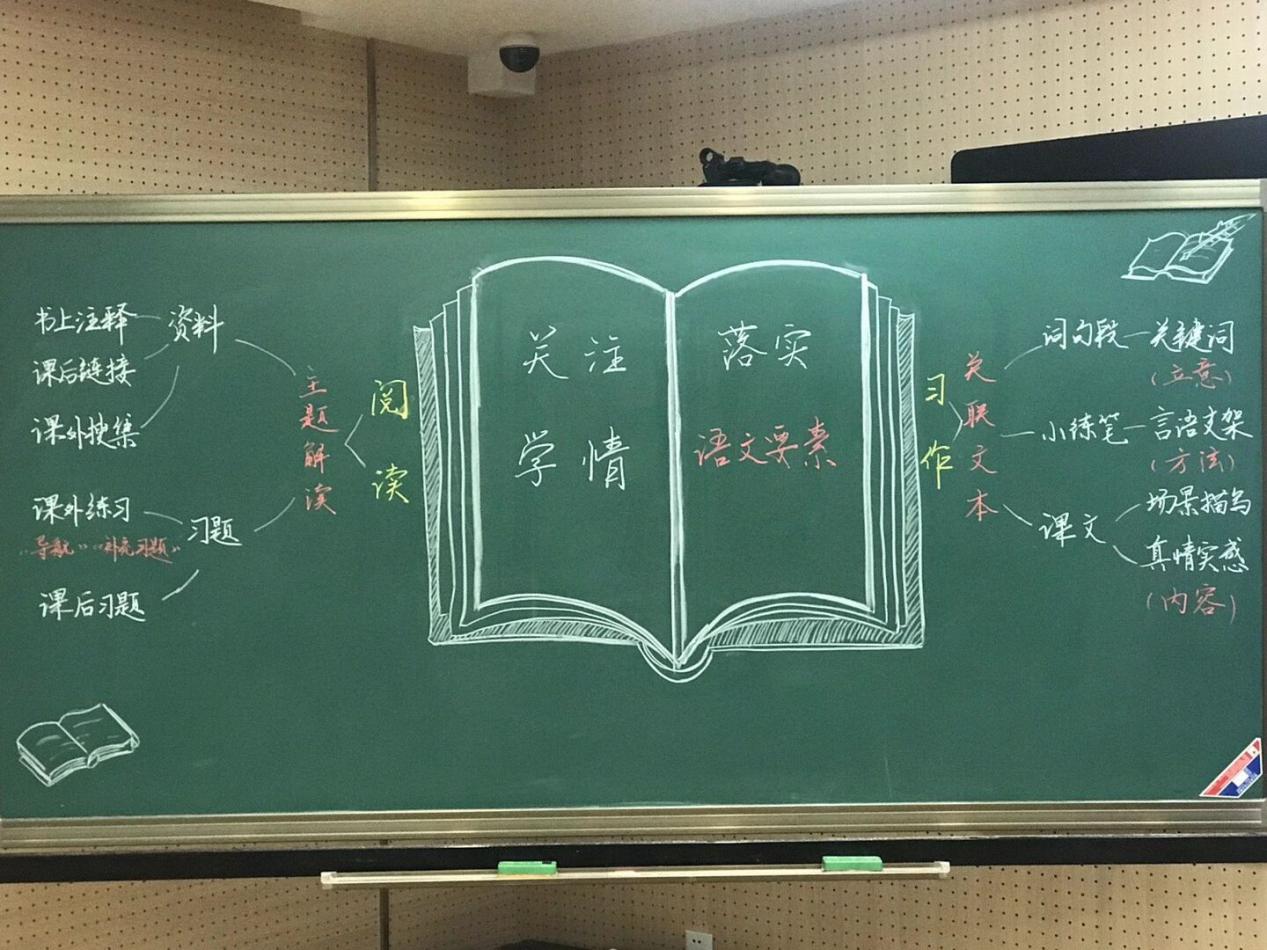 书上注释
资料
课后链接
课外搜集
课外练习
"导航""补充习题"
习题
课后习题
主题解读
阅读
关注
学情
落实
语文要素
习作
关联文本
词句段
关键词
(立意)
小练笔
言语支架
(方法)
课文
场景描写
真情实感
(内容)